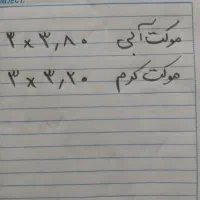 موکت آبی ۳٫۸۰ × ۳
موکت کرم ۳٫۲۰ × ۳